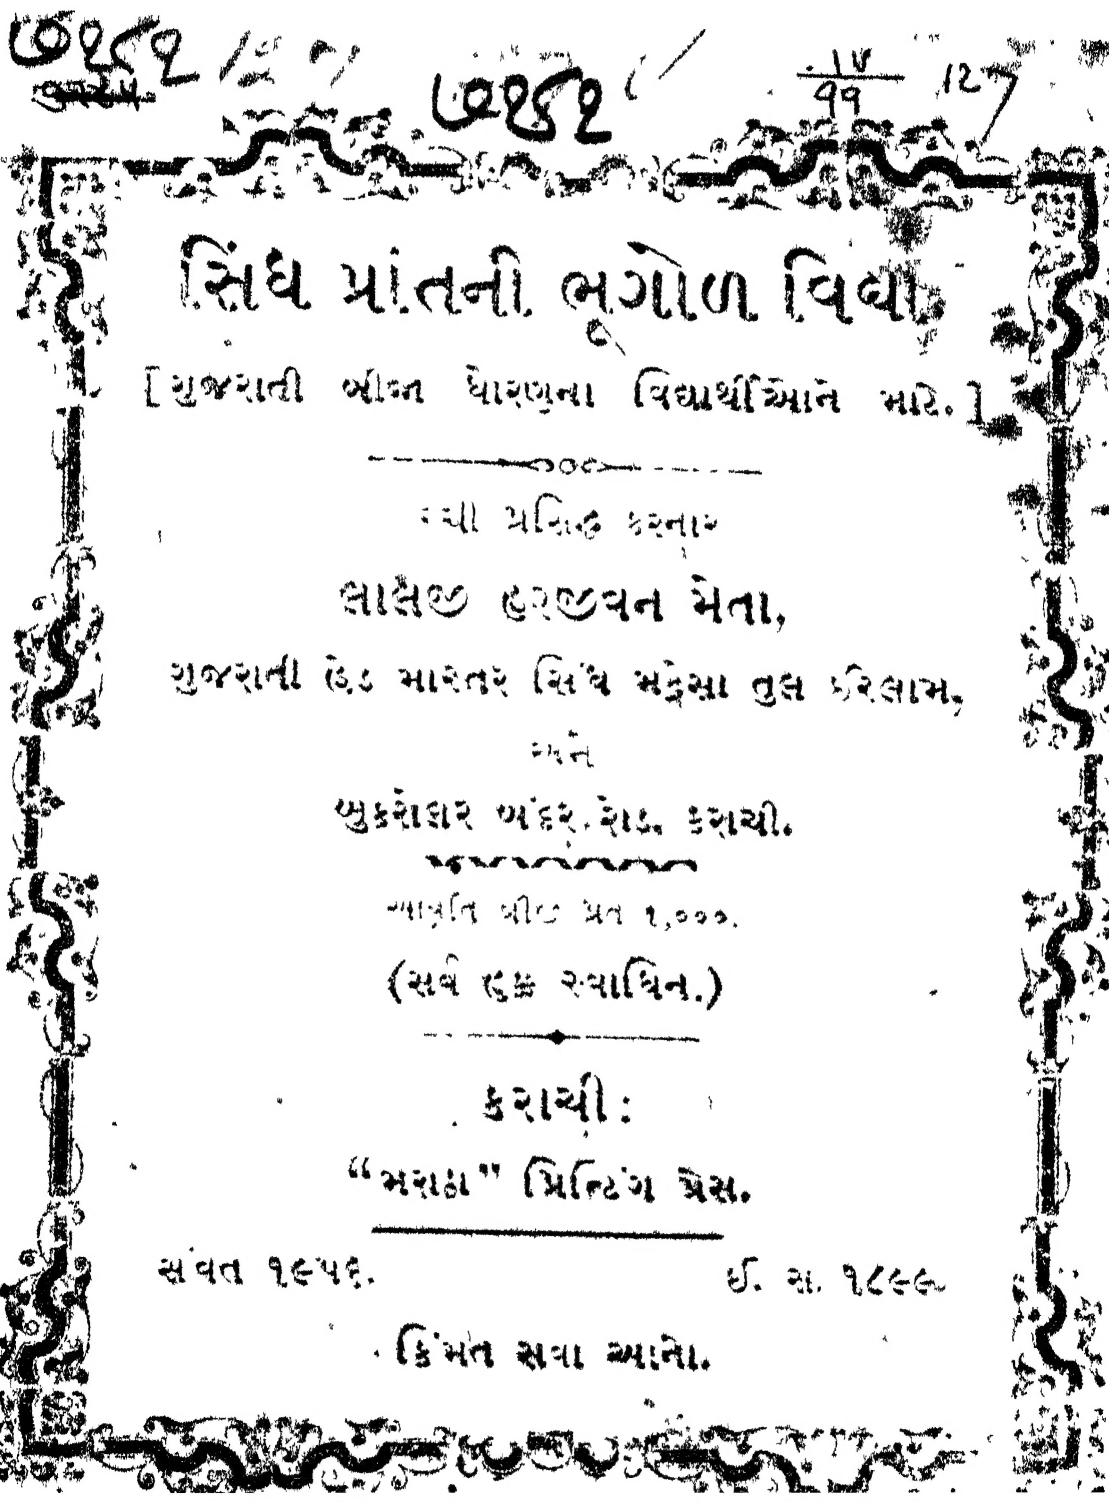 ૭૧૮૧
૭૧૮૧
૧૧
127
સિંધ પ્રાંતની ભૂગોળ વિદ્યા
[ગુજરાતી બીજા ધોરણના વિદ્યાર્થીઓને માટે.]
રચી પ્રસિદ્ધ કરનાર
લાલજી હરજીવન મેતા,
ગુજરાતી હેડ માસ્તર સિંધ મદ્રેસા તુલ ઇસ્લામ,
અને
બુકસેલર બંદર રોડ, કરાચી.
આવૃતિ બીજી પ્રત ૧,૦૦૦.
(સર્વ હક્ક સ્વાધિન.)
કરાચી:
“મરાઠા” પ્રિન્ટિંગ પ્રેસ.
સંવત ૧૯૫૬. ઈ. સ. ૧૮૯૯
કિંમત સવા આનો.